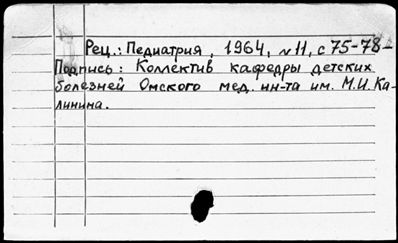 Рец.: Педиатрия, 1964, №11, с 75-78-
Подпись: Коллектив кафедры детских
болезней Омского мед. ин-та им. М.И. Ка-
линина.